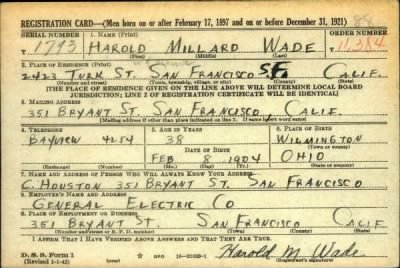 REGISTRATION CARD—(Men born on or after February 17, 1897 and on or before December 31, 1921)
SERIAL NUMBER 1. NAME (Print) ORDER NUMBER
1793 HAROLD MILLARD WADE 11,384
(First) (Middle) (Last)
2. PLACE OF RESIDENCE (Print)
2423 TURK ST. SAN FRANCISCO S.F. CALIF.
(Number and street) (Town, township, village, or city) (County) (State)
[THE PLACE OF RESIDENCE GIVEN ON THE LINE ABOVE WILL DETERMINE LOCAL BOARD
JURISDICTION; LINE 2 OF REGISTRATION CERTIFICATE WILL BE IDENTICAL]
3. MAILING ADDRESS
351 BRYANT ST. SAN FRANCISCO, CALIF.
[Mailing address if other than place indicated on line 2. If same insert word same]
4. TELEPHONE 5. AGE IN YEARS 6. PLACE OF BIRTH
BAYVIEW 4254 38 WILMINGTON
DATE OF BIRTH (Town or county)
FEB 8 1904 OHIO
(Exchange) (Number) (Mo.) (Day) (Yr.) (State or country)
7. NAME AND ADDRESS OF PERSON WHO WILL ALWAYS KNOW YOUR ADDRESS
C. HOUSTON 351 BRYANT ST. SAN FRANCISCO
8. EMPLOYER'S NAME AND ADDRESS
GENERAL ELECTRIC CO
9. PLACE OF EMPLOYMENT OR BUSINESS
351 BRYANT ST. SAN FRANCISCO CALIF
(Number and street or R. F. D. number) (Town) (County) (State)
I AFFIRM THAT I HAVE VERIFIED ABOVE ANSWERS AND THAT THEY ARE TRUE.
D. S. S. Form 1
(Revised 1-1-42) (over) GPO 16-21630-1 Harold M. Wade
(Registrant's signature)